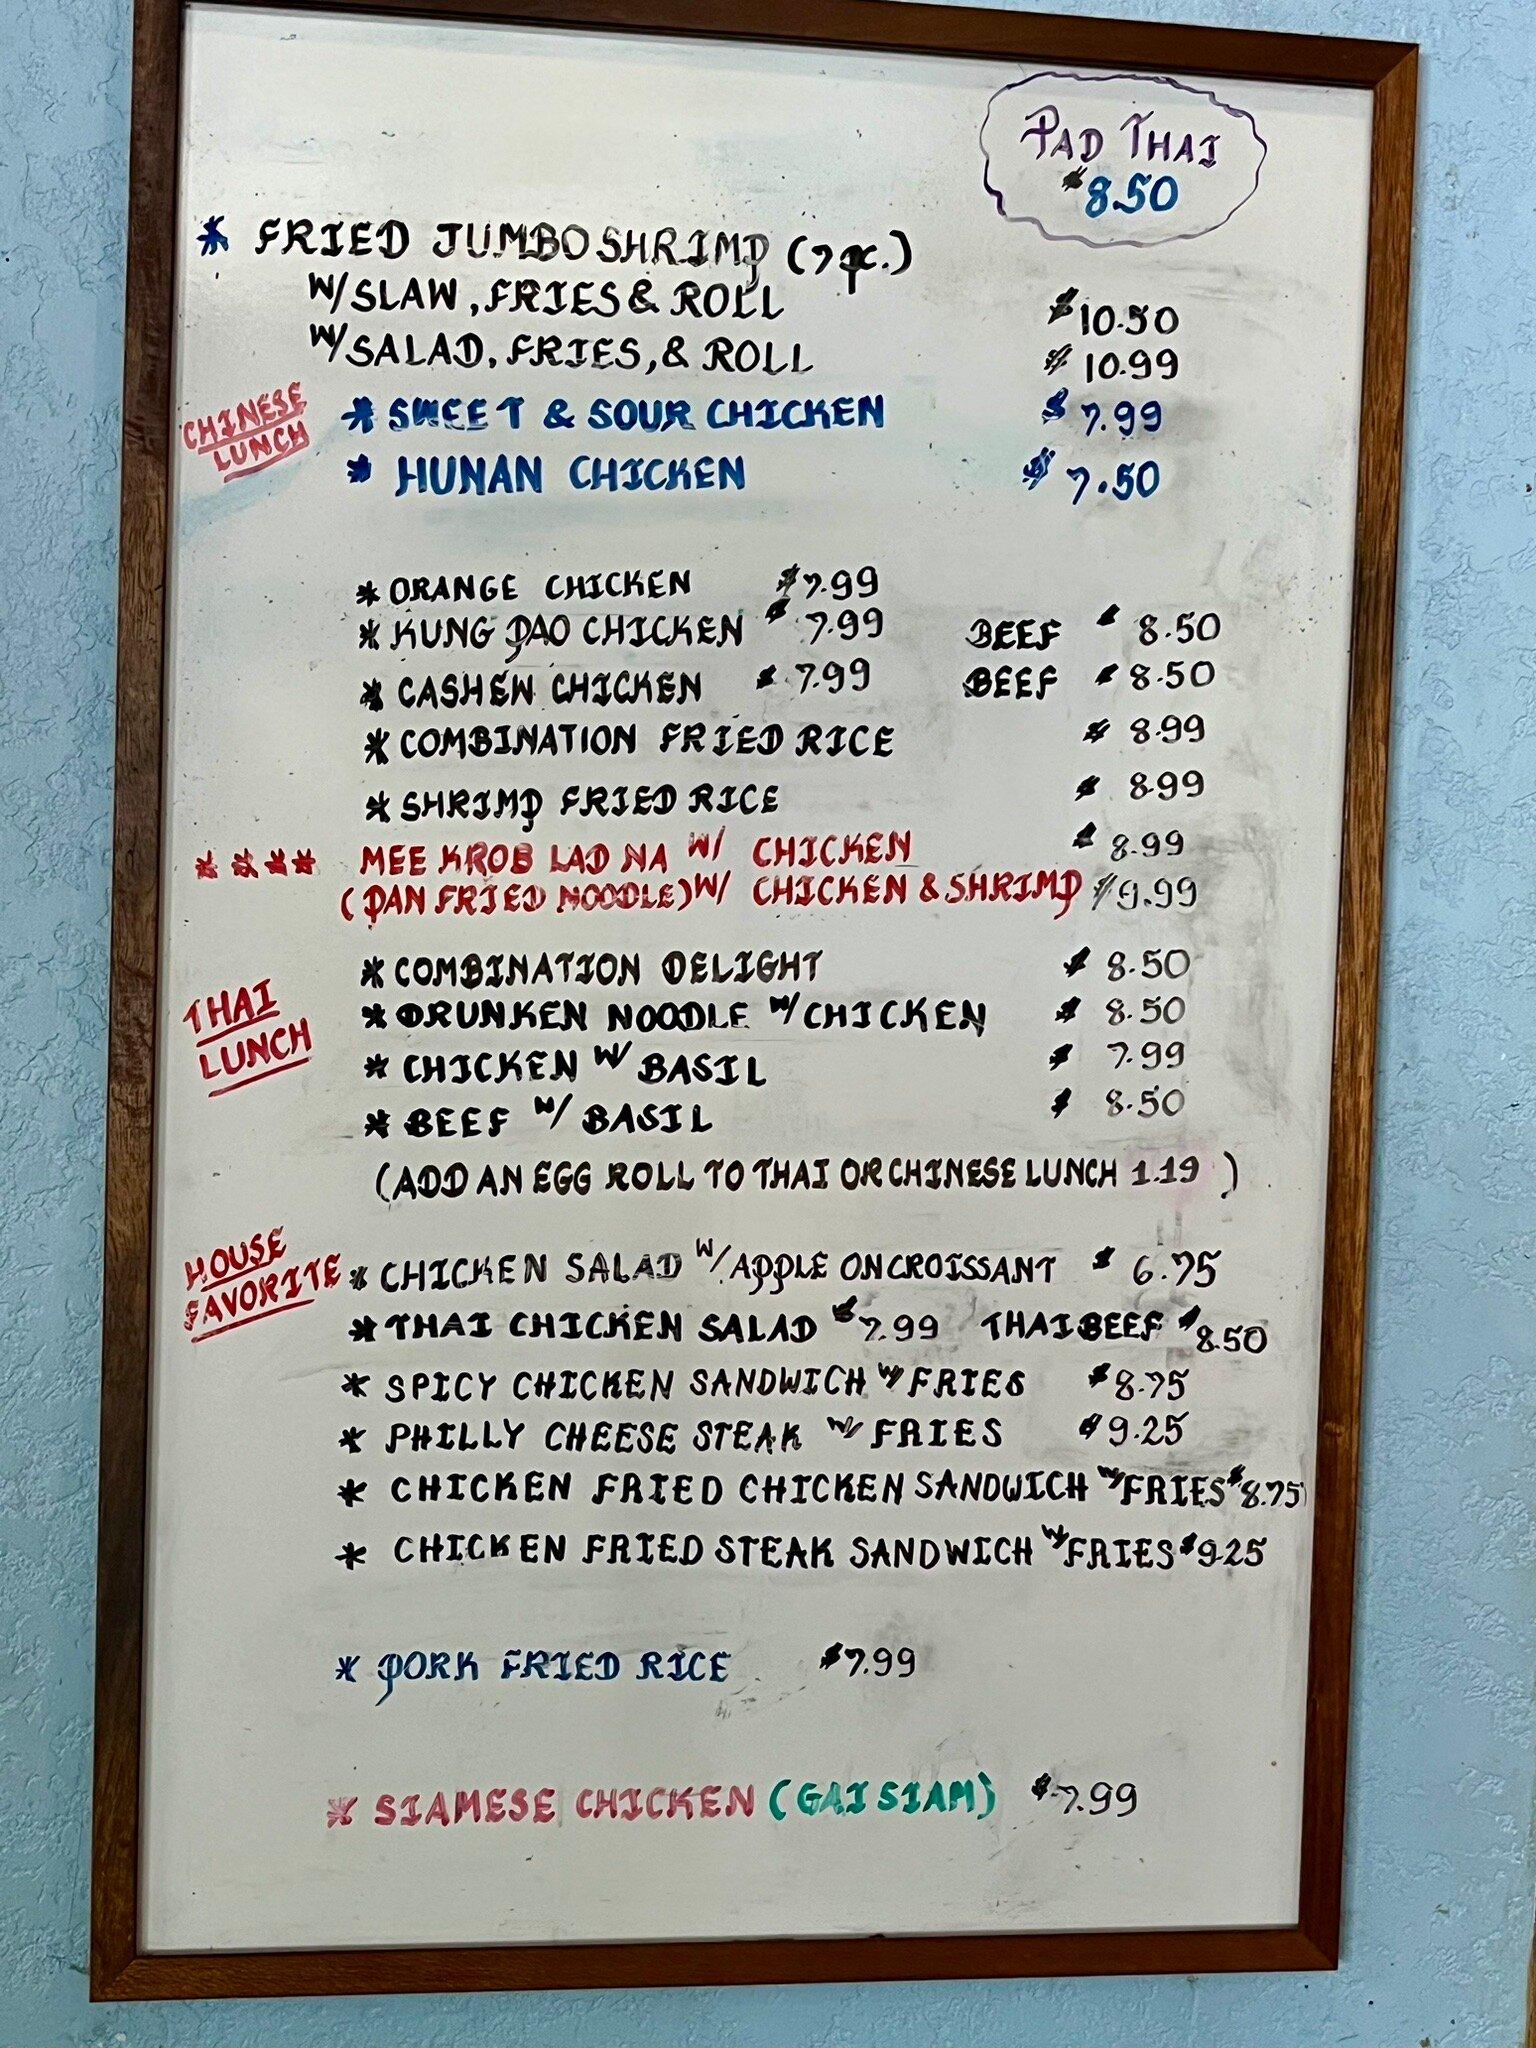 PAD THAI
$8.50
* FRIED JUMBO SHRIMP (7 pc.)
W/SLAW, FRIES & ROLL $10.50
W/SALAD, FRIES, & ROLL $10.99
CHINESE
LUNCH
* SWEET & SOUR CHICKEN $7.99
* HUNAN CHICKEN $7.50
* ORANGE CHICKEN $7.99
* KUNG PAO CHICKEN $7.99 BEEF $8.50
* CASHEW CHICKEN $7.99 BEEF $8.50
* COMBINATION FRIED RICE $8.99
* SHRIMP FRIED RICE $8.99
**** MEE KROB LAD NA W/ CHICKEN $8.99
(PAN FRIED NOODLE) W/ CHICKEN & SHRIMP $9.99
THAI
LUNCH
* COMBINATION DELIGHT $8.50
* DRUNKEN NOODLE W/CHICKEN $8.50
* CHICKEN W/ BASIL $7.99
* BEEF W/ BASIL $8.50
(ADD AN EGG ROLL TO THAI OR CHINESE LUNCH 1.19)
HOUSE
FAVORITE
* CHICKEN SALAD W/APPLE ON CROISSANT $6.75
* THAI CHICKEN SALAD $7.99 THAI BEEF $8.50
* SPICY CHICKEN SANDWICH W/ FRIES $8.75
* PHILLY CHEESE STEAK W/ FRIES $9.25
* CHICKEN FRIED CHICKEN SANDWICH W/ FRIES $8.75
* CHICKEN FRIED STEAK SANDWICH W/ FRIES $9.25
* PORK FRIED RICE $7.99
* SIAMESE CHICKEN (GAI SIAM) $7.99